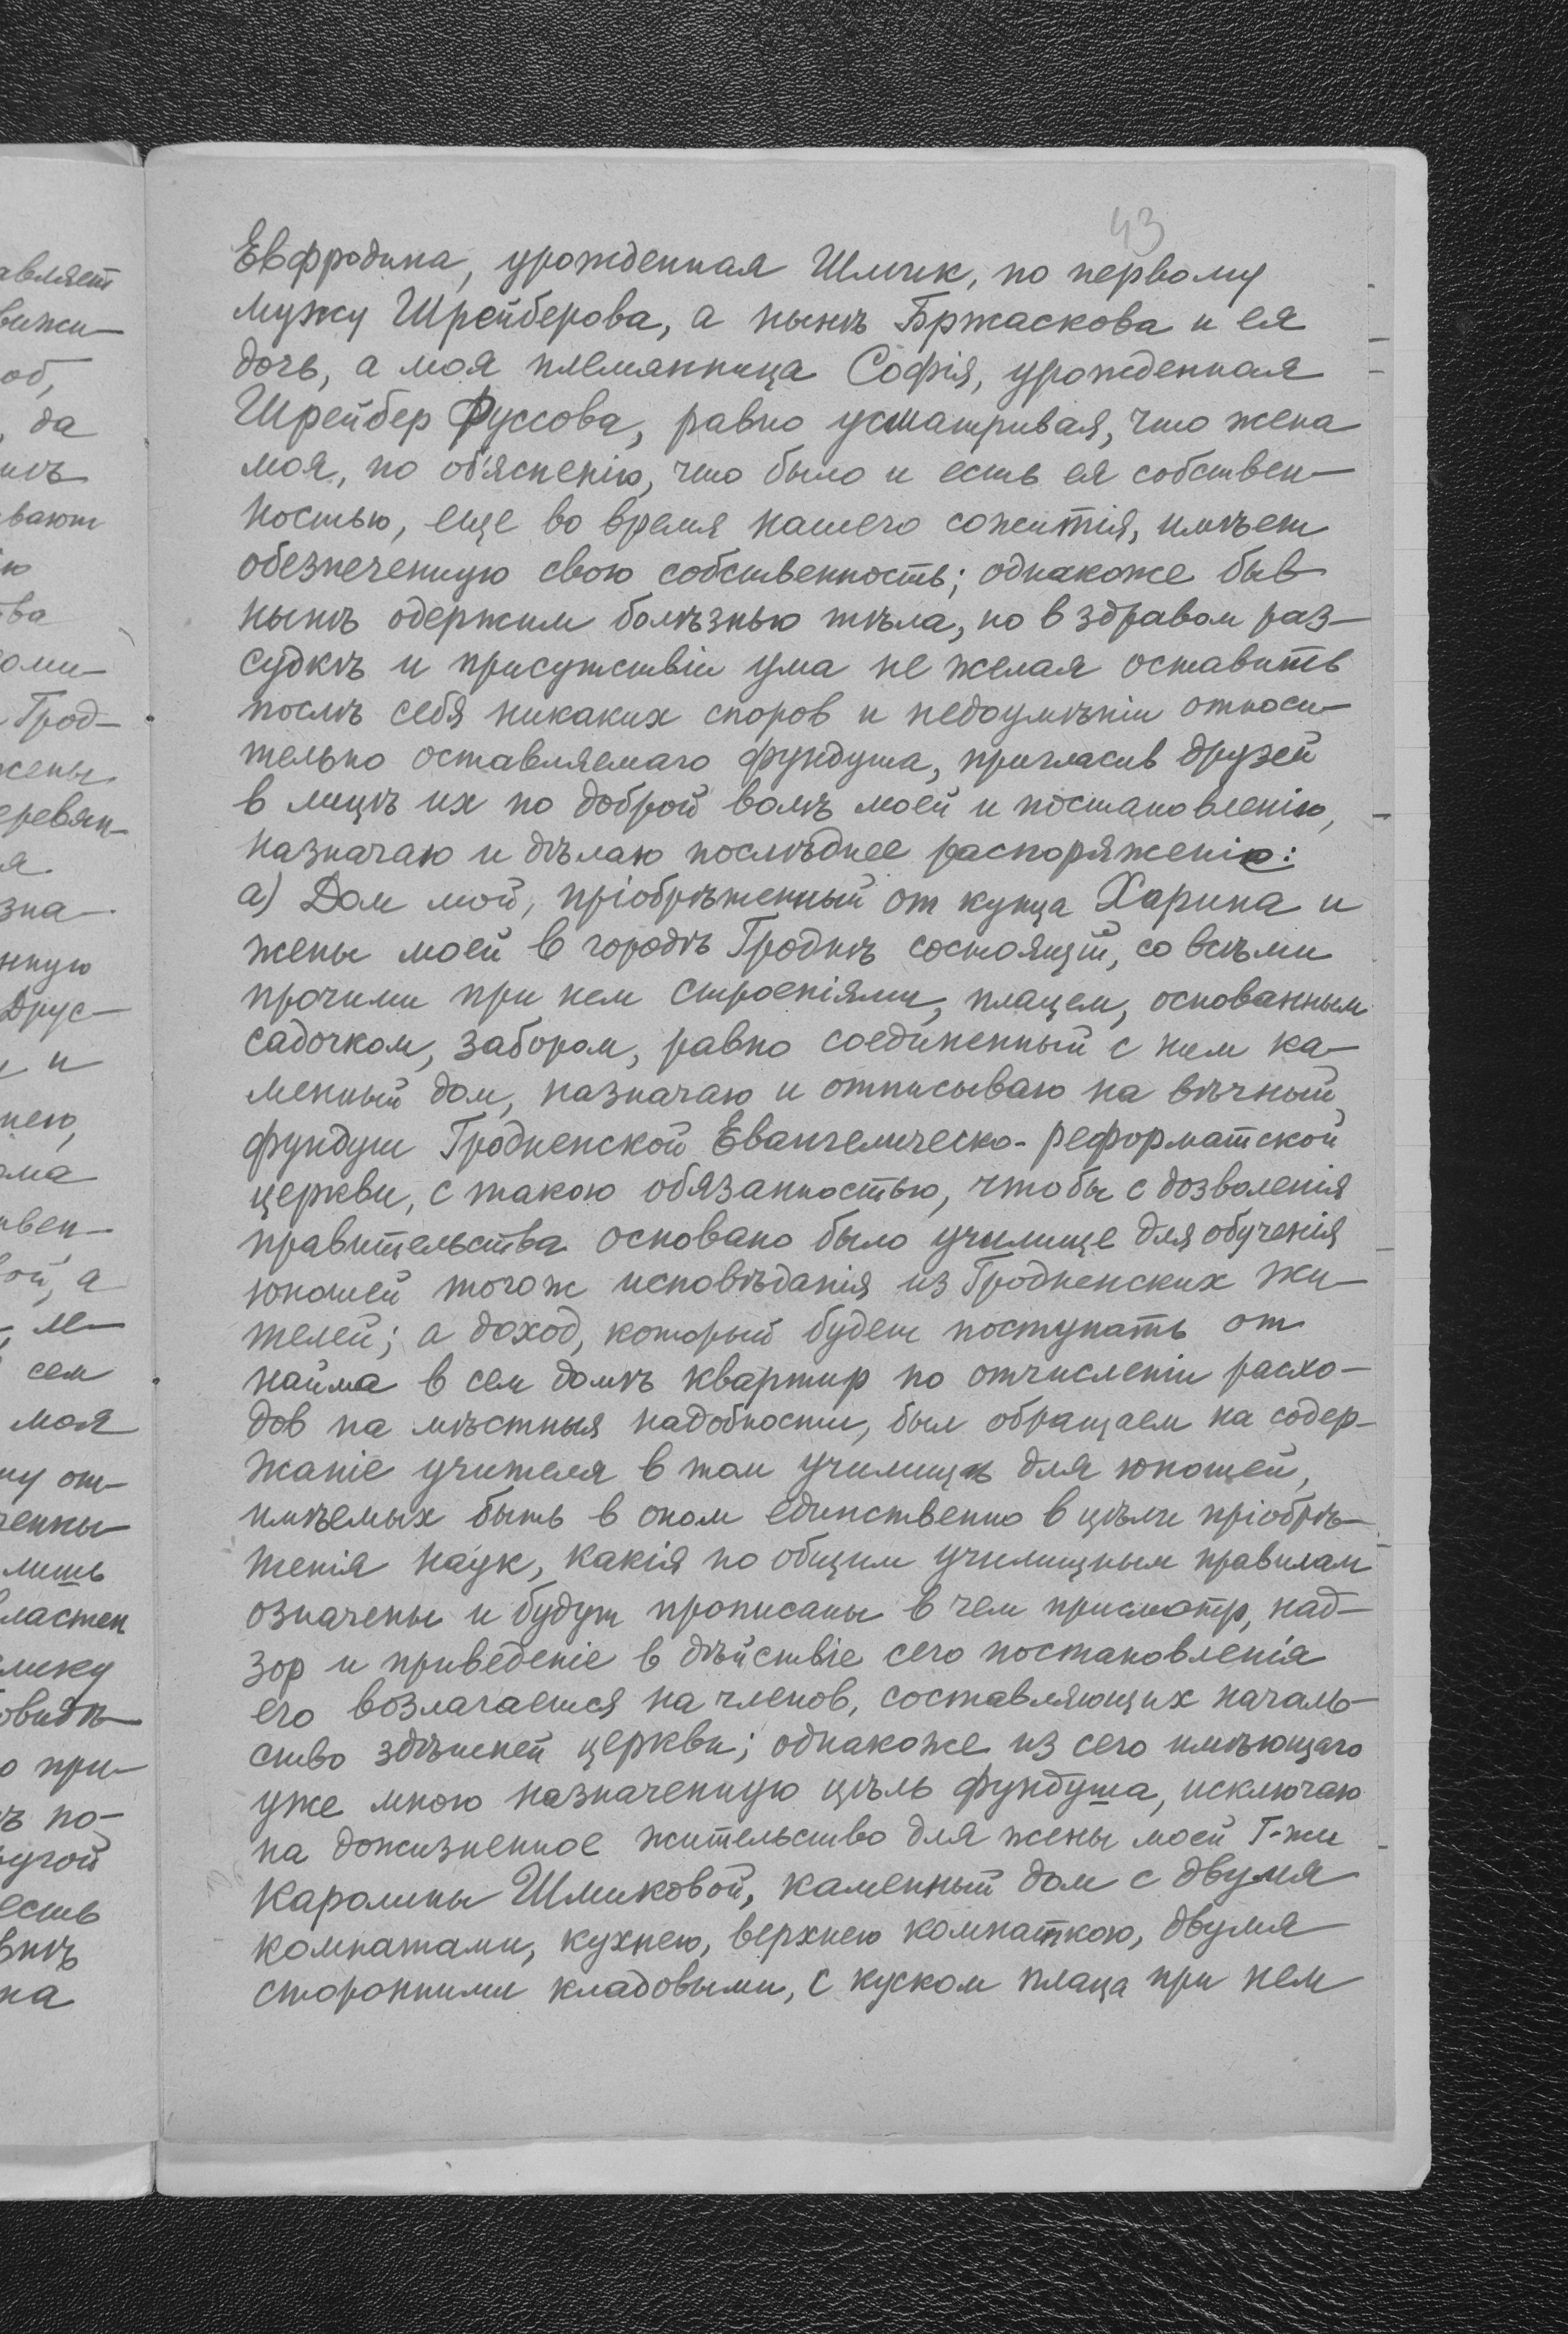 43
Евфродина, урожденная Шмик, по первому
мужу Шрейберова, а нынѣ Бржаскова и ея
дочь, а моя племянница Софія, урожденная
Шрейбер Фуссова, равно усматривая, что жена
моя, по об'ясненію, что было и есть ея собствен-
ностью, еще во время нашего сожитія, имѣет
обезпеченную свою собственность; однакоже быв
нынѣ одержим болѣзнью тѣла, но в здравом раз-
судкѣ и присутствіи ума не желая оставить
послѣ себя никаких споров и недоумѣніи относи-
тельно оставляемаго фундуша, пригласив друзей
в лицѣ их по доброй волѣ моей и постановленію,
назначаю и дѣлаю послѣднее распоряженіе:
а) Дом мой, пріобрѣтенный от купца Харина и
жены моей в городѣ Гроднѣ состоящій, со всѣми
прочими при нем строеніями, плацем, основанным
садочком, забором, равно соединенный с ним ка-
менный дом, назначаю и отписываю на вѣчный
фундуш Гродненской Евангелическо-реформатской
церкви, с такою обязанностью, чтобы с дозволенія
правительства основано было училище для обученія
юношей тогож исповѣданія из Гродненских жи-
телей; а доход, который будет поступать от
найма в сем домѣ квартир по отчисленіи расхо-
дов на мѣстныя надобности, был обращаем на содер-
жаніе учителя в том училищѣ для юношей,
имѣемых быть в оном единственно в цѣли пріобрѣ-
тенія наук, какія по общим училищным правилам
означены и будут прописаны в чем присмотр, над-
зор и приведеніе в дѣйствіе сего постановленія
его возлагается на членов, составляющих началь-
ство здѣшней церкви; однакоже из сего имѣющаго
уже мною назначенную цѣль фундуша, исключаю
на дожизненное жительство для жены моей Г-жи
Каролины Шмиковой, каменный дом с двумя
комнатами, кухнею, верхнею комнаткою, двумя
сторонними кладовыми, с куском плаца при нем